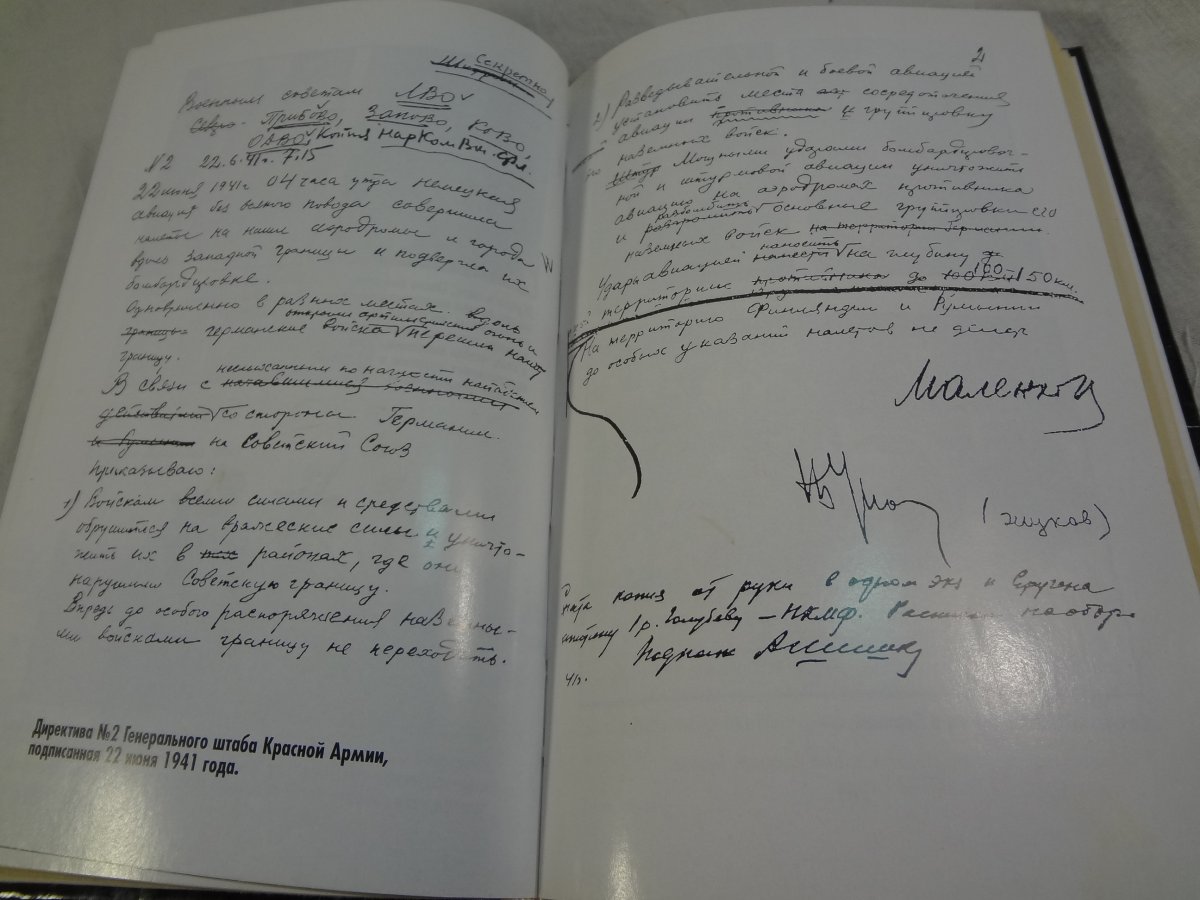 Секретно
Шифром
Военным советам ЛВО
Прибово, Запово, Ково,
ОдВО, Копия НарКом Вм. фл.
N2 22.6.41г. 7.15
22 июня 1941г 04 часа утра немецкая
авиация без всякого повода совершила
налеты на наши аэродромы и города
вдоль западной границы и подвергла их
бомбардировке.
Одновременно в разных местах вдоль
открыли артиллерийский огонь и
границы германские войска перешли нашу
границу.
неслыханным по наглости нападением
В связи с
со стороны Германии
на Советский Союз
приказываю:
1) Войскам всеми силами и средствами
обрушиться на вражеские силы и уничто-
жить их в районах, где они
нарушили Советскую границу.
Впредь до особого распоряжения наземны-
ми войсками границу не переходить.
Директива №2 Генерального штаба Красной Армии,
подписанная 22 июня 1941 года.
2
2) Разведывательной и боевой авиацией
установить места сосредоточения
авиации противника и группировку
наземных войск.
Мощными ударами бомбардировоч-
ной и штурмовой авиации уничтожить
авиацию на аэродромах противника
разбомбить
и разгромить основные группировки его
наземных войск на территории Германии.
наносить
Удары авиацией нанести на глубину
территории противника до 100 км 100 150 км.
На территорию Финляндии и Румынии
до особых указаний налетов не делать
Маленков
(Жуков)
копия от руки в одном экз и вручена
1 р. Голубеву – НКМФ. на обор